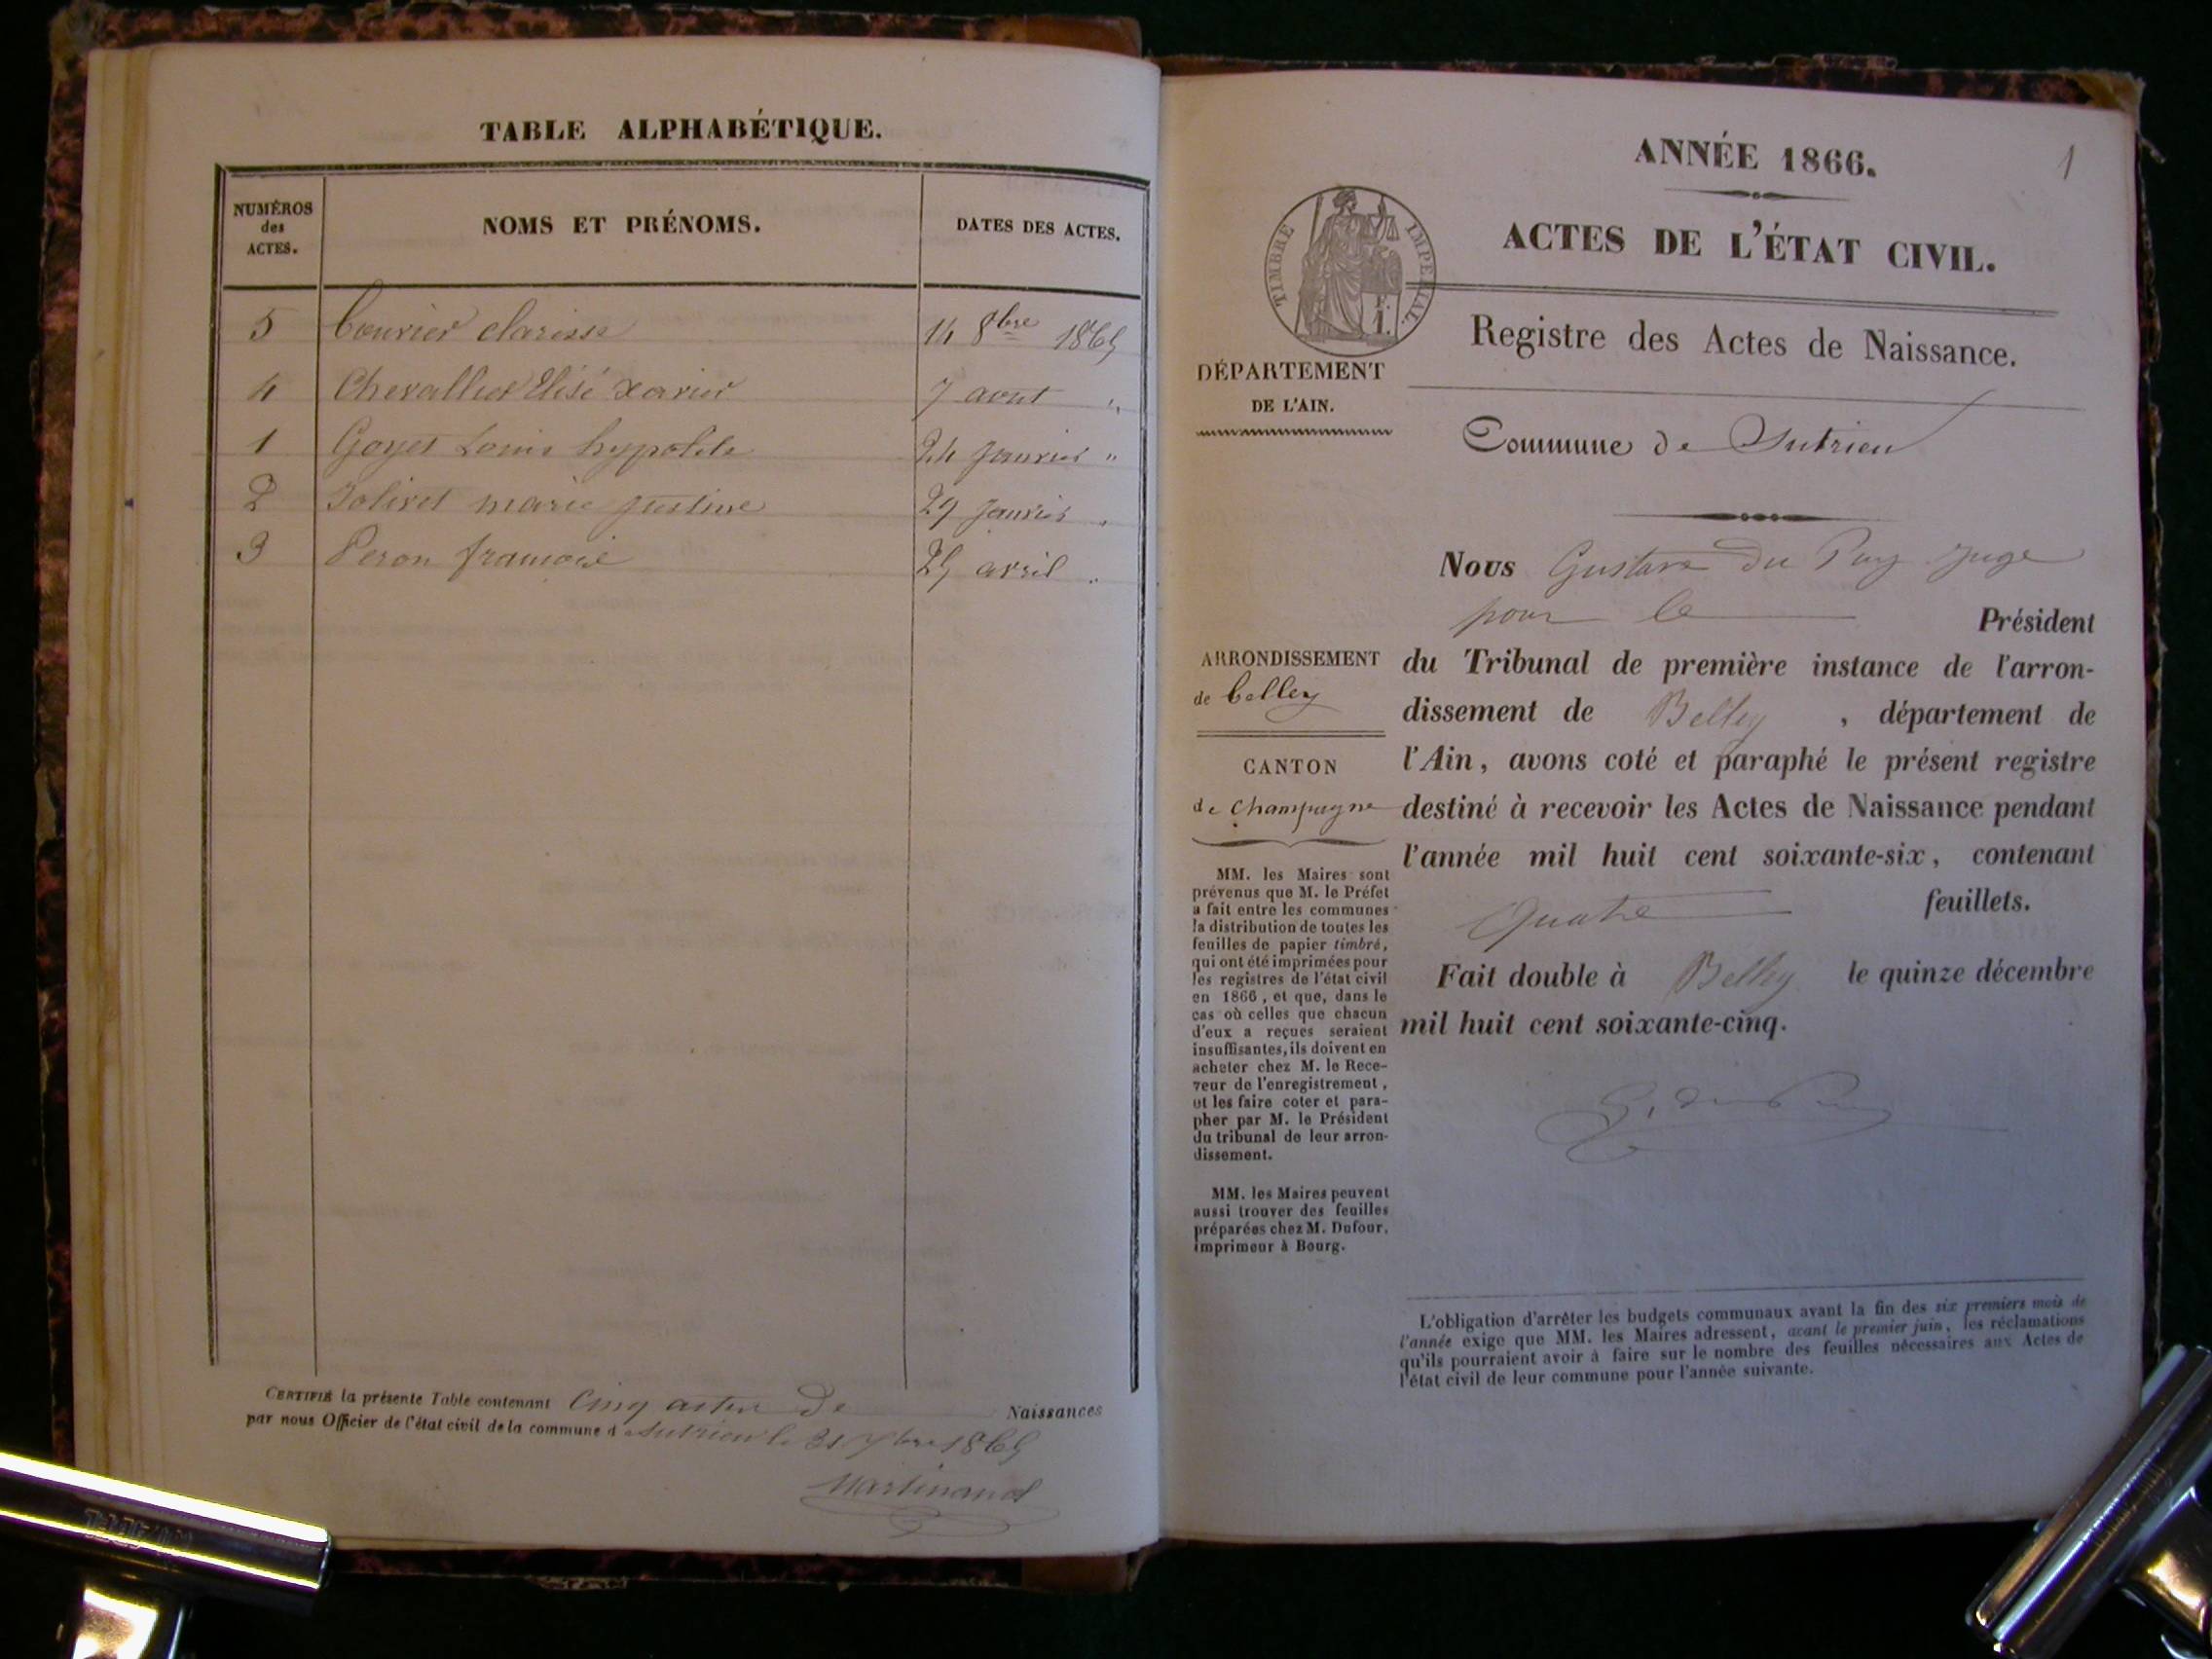 TABLE ALPHABÉTIQUE.
NUMÉROS des ACTES.
NOMS ET PRÉNOMS.
DATES DES ACTES.
5 Courrier clarisse 14 8bre 1865
4 Chevallier Elisé xavier 7 aout "
1 Goyet Louis hypolite 24 Janvier "
2 Jolivet marie justine 29 Janvier "
3 Peron françois 25 avril "
CERTIFIÉ la présente Table contenant Cinq actes de Naissances
par nous Officier de l'état civil de la commune d Sutrieu le 31 1865
Martinand
1
ANNÉE 1866.
ACTES DE L'ÉTAT CIVIL.
TIMBRE IMPÉRIAL.
Registre des Actes de Naissance.
DÉPARTEMENT
DE L'AIN.
Commune de Sutrieu
Nous Gustave Du Puy Juge
pour le Président
du Tribunal de première instance de l'arron-
dissement de Belley, département de
l'Ain, avons coté et paraphé le présent registre
destiné à recevoir les Actes de Naissance pendant
l'année mil huit cent soixante-six, contenant
Quatre feuillets.
Fait double à Belley le quinze décembre
mil huit cent soixante-cinq.
ARRONDISSEMENT
de belley
CANTON
de Champagne
MM. les Maires sont
prévenus que M. le Préfet
a fait entre les communes
la distribution de toutes les
feuilles de papier timbré,
qui ont été imprimées pour
les registres de l'état civil
en 1866, et que, dans le
cas où celles que chacun
d'eux a reçues seraient
insuffisantes, ils doivent en
acheter chez M. le Rece-
veur de l'enregistrement,
et les faire coter et para-
pher par M. le Président
du tribunal de leur arron-
dissement.
MM. les Maires peuvent
aussi trouver des feuilles
préparées chez M. Dufour,
imprimeur à Bourg.
L'obligation d'arrêter les budgets communaux avant la fin des six premiers mois de
l'année exige que MM. les Maires adressent, avant le premier juin, les réclamations
qu'ils pourraient avoir à faire sur le nombre des feuilles nécessaires aux Actes de
l'état civil de leur commune pour l'année suivante.